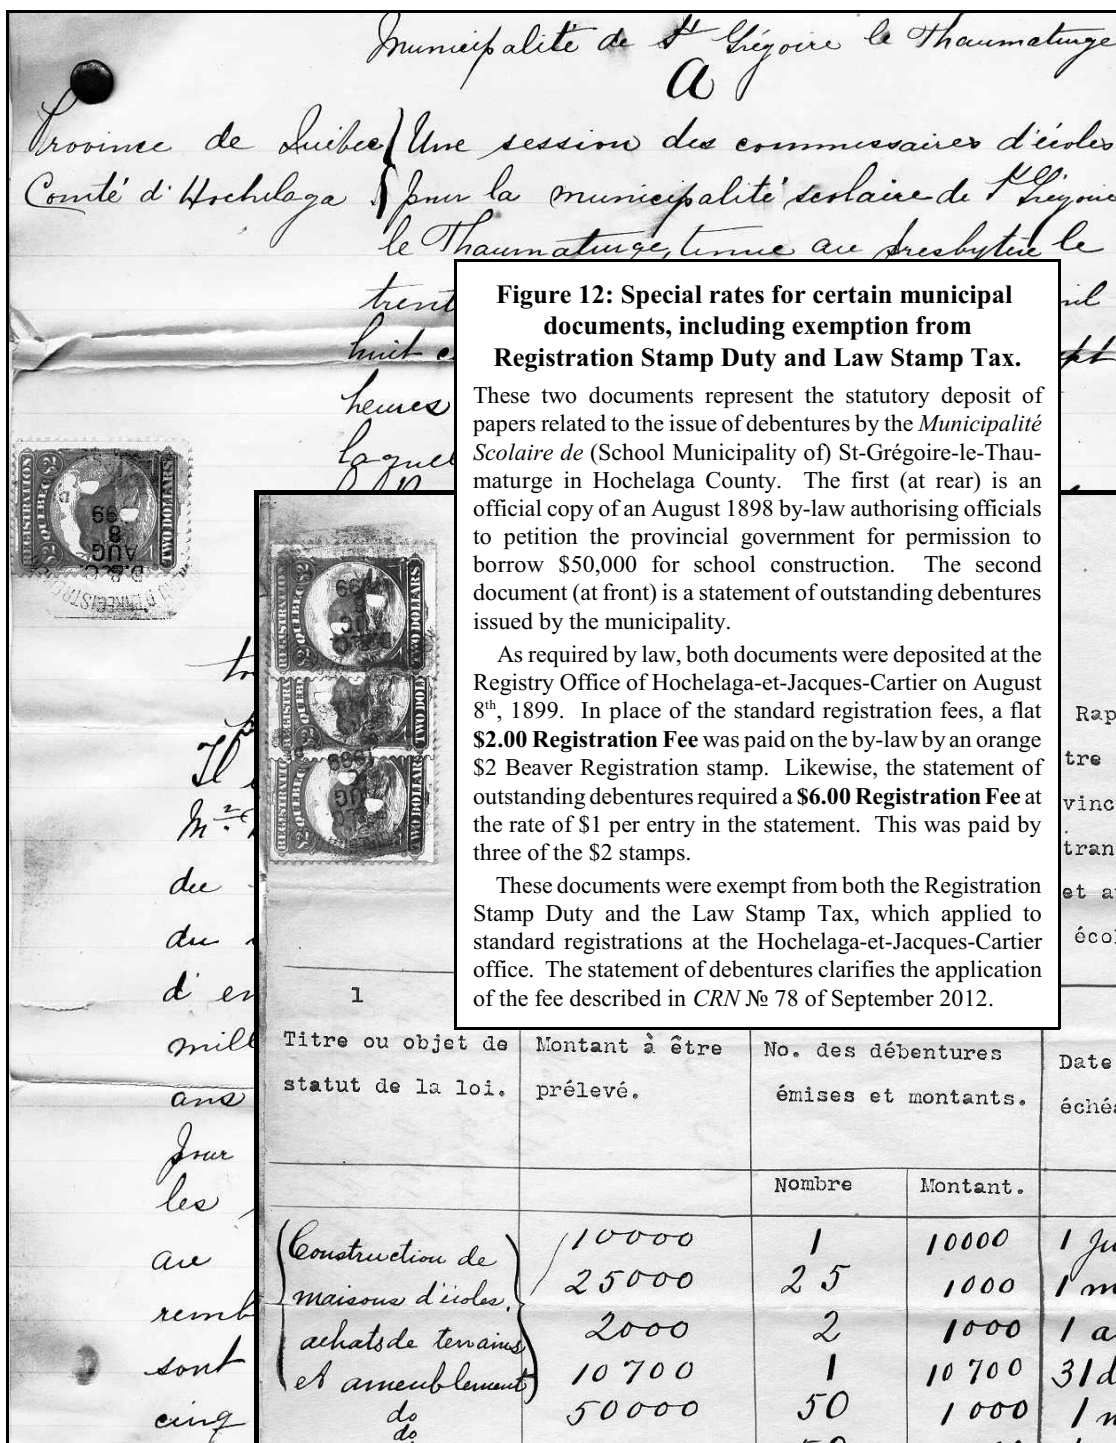 Municipalité de St Grégoire le Thaumaturge
A
Province de Québec
Comté d'Hochelaga
Une session des commissaires d'écoles
pour la municipalité scolaire de St Grégoire
le Thaumaturge, tenue au presbytère le
trent
huit c
heures
laquel
Figure 12: Special rates for certain municipal
documents, including exemption from
Registration Stamp Duty and Law Stamp Tax.
These two documents represent the statutory deposit of
papers related to the issue of debentures by the Municipalité
Scolaire de (School Municipality of) St-Grégoire-le-Thau-
maturge in Hochelaga County. The first (at rear) is an
official copy of an August 1898 by-law authorising officials
to petition the provincial government for permission to
borrow $50,000 for school construction. The second
document (at front) is a statement of outstanding debentures
issued by the municipality.
As required by law, both documents were deposited at the
Registry Office of Hochelaga-et-Jacques-Cartier on August
8th, 1899. In place of the standard registration fees, a flat
$2.00 Registration Fee was paid on the by-law by an orange
$2 Beaver Registration stamp. Likewise, the statement of
outstanding debentures required a $6.00 Registration Fee at
the rate of $1 per entry in the statement. This was paid by
three of the $2 stamps.
These documents were exempt from both the Registration
Stamp Duty and the Law Stamp Tax, which applied to
standard registrations at the Hochelaga-et-Jacques-Cartier
office. The statement of debentures clarifies the application
of the fee described in CRN № 78 of September 2012.
REGISTRATION
QUEBEC
TWO DOLLARS
8
AUG
99
REGISTRATION
QUEBEC
TWO DOLLARS
REGISTRY
TWO DOL
REGISTRATION
QUEBEC
TWO DOLLARS
Il
du
du
d'en
mill
ans
pour
les
au
remb
sont
cinq
Rap
tre
vinc
tran
et a
écol
1
Titre ou objet de
statut de la loi.
Montant à être
prélevé.
No. des débentures
émises et montants.
Date
éché
Nombre
Montant.
Construction de
maisons d'écoles,
achats de terrains
et ameublement
10000 1 10000 1 Ju
25000 25 1000 1 m
2000 2 1000 1 a
10700 1 10700 31 d
do 50000 50 1000 1 m
do